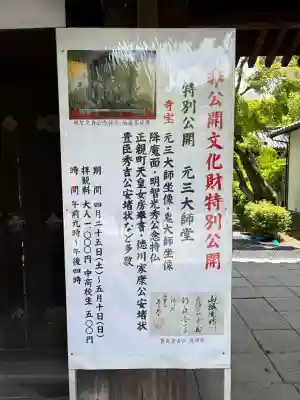 非公開文化財特別公開
特別公開 元三大師堂
寺宝 元三大師坐像・鬼大師坐像
降魔面・明智光秀公念持仏
正親町天皇女房奉書・徳川家康公安堵状
豊臣秀吉公安堵状など多数
期間 四月二十五日(土)~五月十日(日)
拝観料 大人一,〇〇〇円 中高校生 五〇〇円
時間 午前九時~午後四時